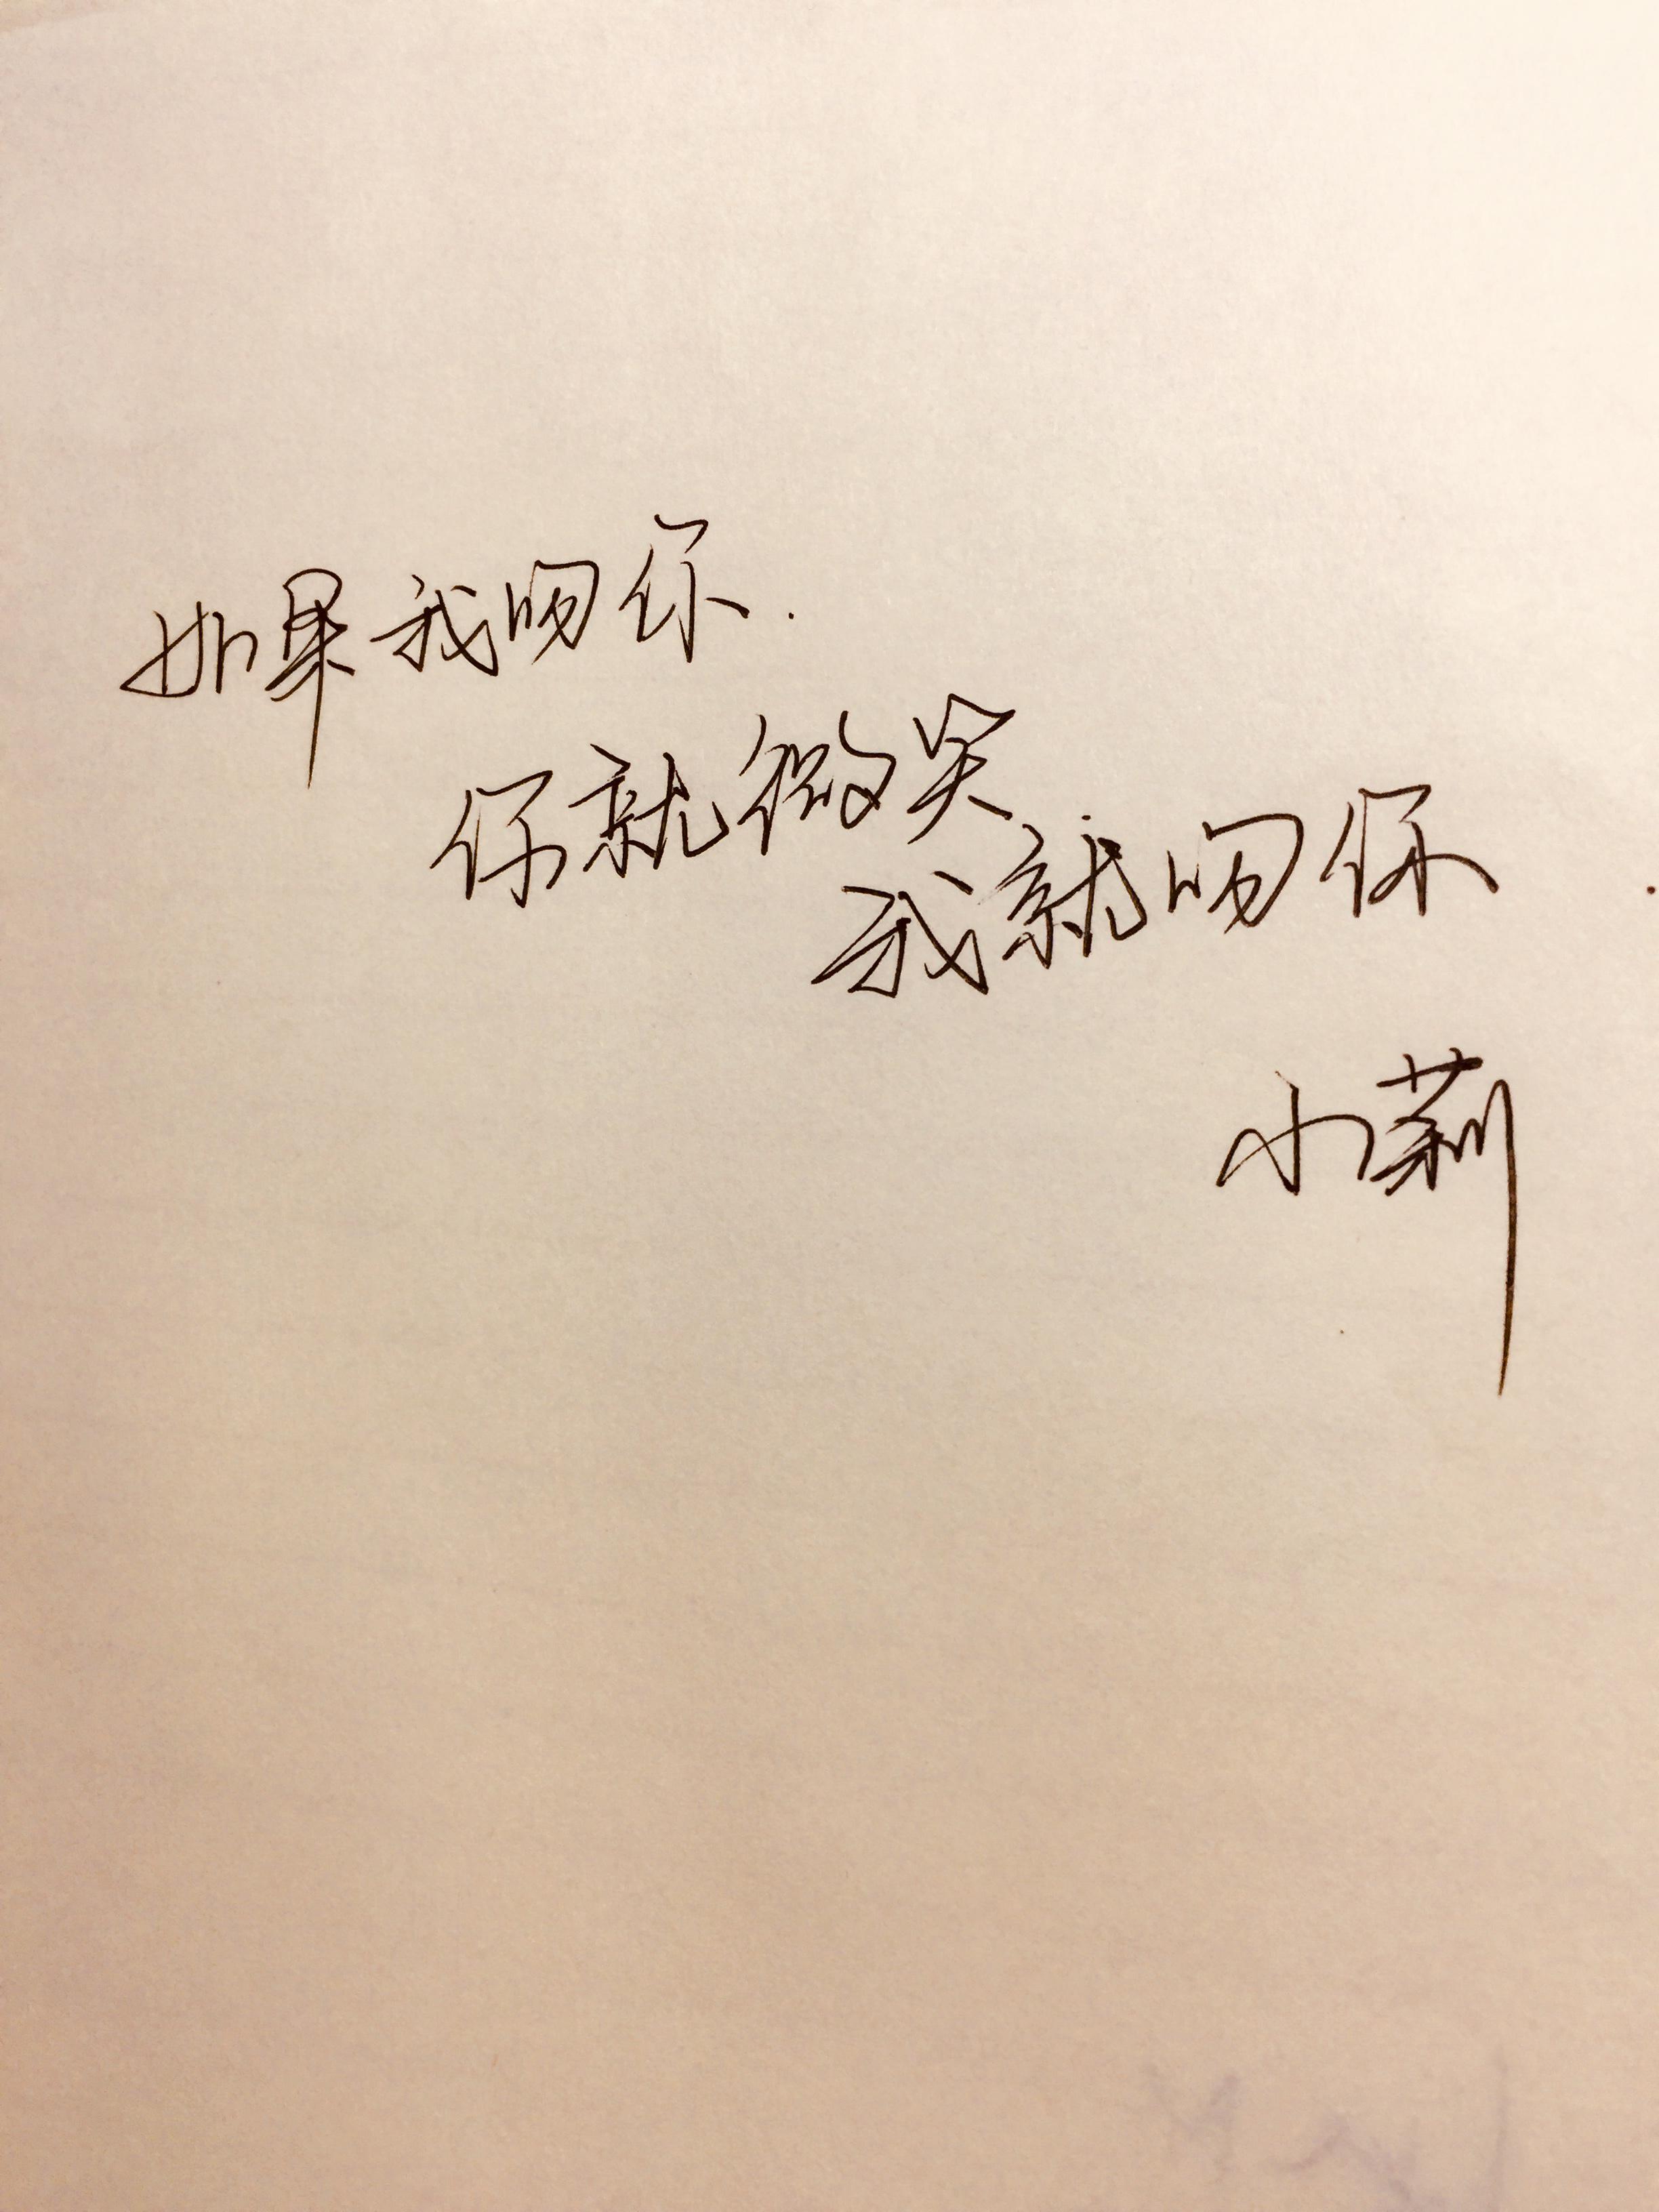 如果我吻你.
你就微笑
我就吻你
小莉